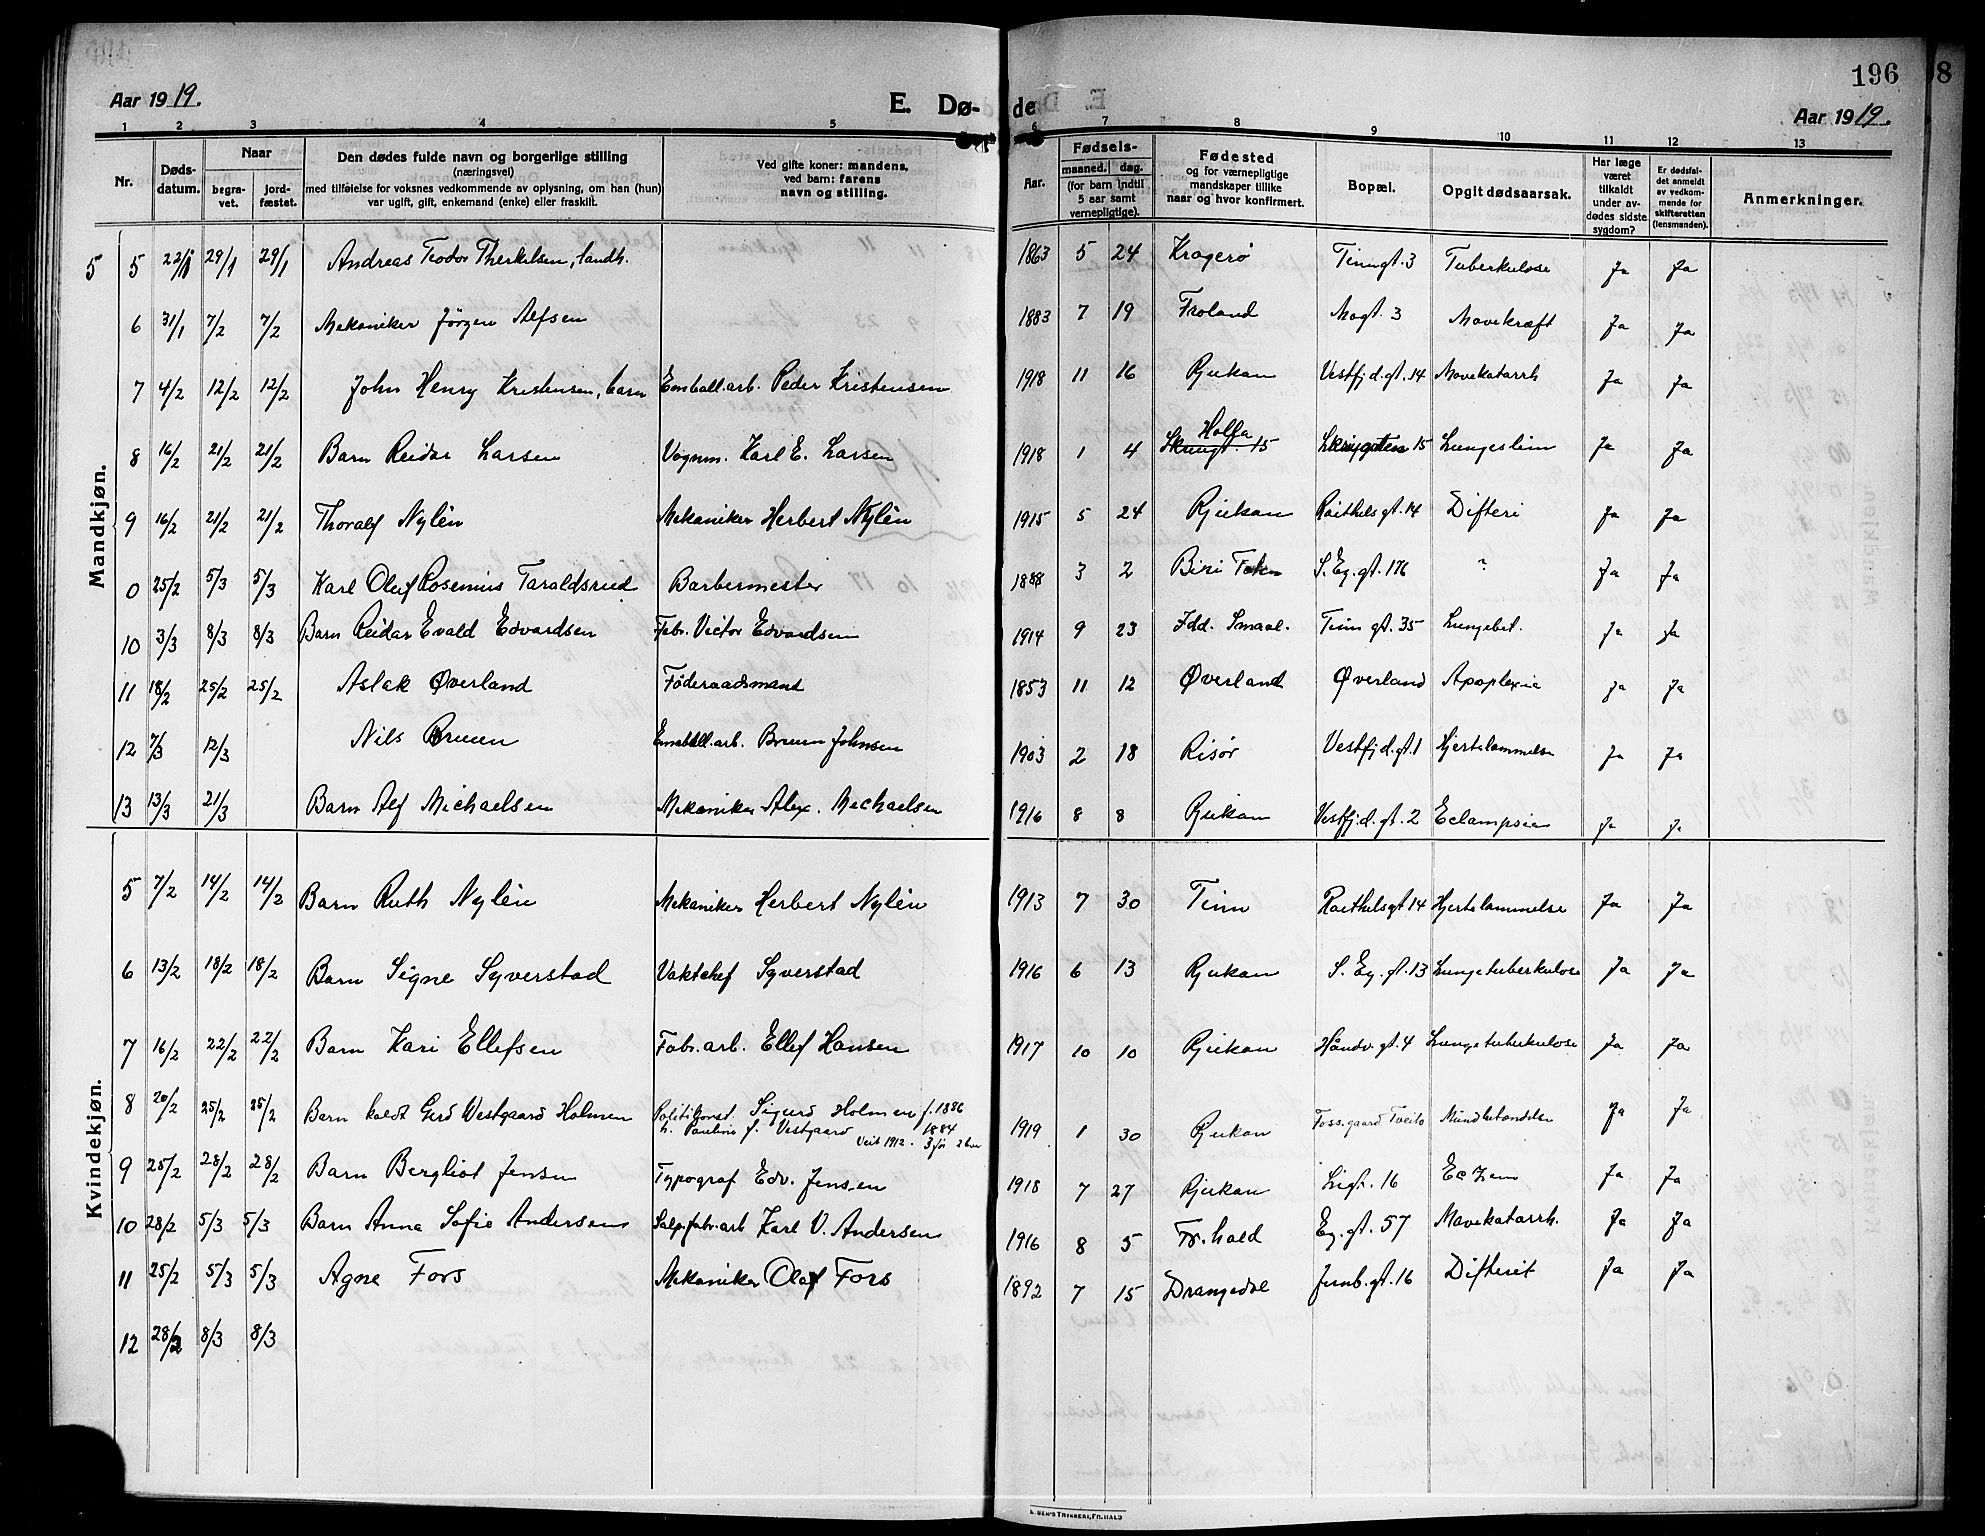 196
8
Aar 1919.
E. Dø-
de
Aar 1919.
1 2 3 4 5 6 7 8 9 10 11 12 13
Nr.
Døds-
datum.
Naar
begra-
vet.
jord-
fæstet.
Den dødes fulde navn og borgerlige stilling
(næringsvei)
med tilføielse for voksnes vedkommende av oplysning, om han (hun)
var ugift, gift, enkemand (enke) eller fraskilt.
Ved gifte koner: mandens,
ved barn: farens
navn og stilling.
Aar.
Fødsels-
maaned. dag.
(for barn indtil
5 aar samt
vernepligtige).
Fødested
og for værnepligtige
mandskaper tillike
naar og hvor konfirmert.
Bopæl.
Opgit dødsaarsak.
Har læge
været
tilkaldt
under av-
dødes sidste
sygdom?
Er dødsfal-
det anmeldt
av vedkom-
mende for
skifteretten
(lensmanden).
Anmerkninger.
Mandkjøn.
5 5 22/1 29/1 29/1 Andreas Teodor Therkelsen, landh. 1863 5 24 Kragerø Tinngt. 3 Tuberkulose Ja Ja
6 31/1 7/2 7/2 Mekaniker Jörgen Alfsen 1883 7 19 Froland Mogt. 3 Mavekræft Ja Ja
7 4/2 12/2 12/2 John Henry Kristensen, barn Emball.arb. Peder Kristensen 1918 11 16 Rjukan Vestfjd.gt. 14 Mavekatarrh Ja Ja
8 16/2 21/2 21/2 Barn Reidar Larsen Vognm. Karl E. Larsen 1918 1 4 Holla 15 15 Lungeslim Ja Ja
9 16/2 21/2 21/2 Thoralf Nylén Mekaniker Herbert Nylén 1915 5 24 Rjukan Raithelsgt. 14 Difteri Ja Ja
0 25/2 5/3 5/3 Karl Oluf Rosenius Taraldsrud Barbermester 1888 3 2 Biri S. Eg. gt. 176 ? Ja Ja
10 3/3 8/3 8/3 Barn Reidar Evald Edvardsen Fabr. Victor Edvardsen 1914 9 23 Idd. Smaal. Tinn gt. 35 Lungebet. Ja Ja
11 18/2 25/2 25/2 Aslak Øverland Föderaadsmand 1853 11 12 Øverland Øverland Apoplexia Ja Ja
12 7/3 12/3 Nils Bruun Emball.arb. Bruun Johnsen 1903 2 18 Risör Vestfjd.gt. 1 Hjertelammelse Ja Ja
13 13/3 21/3 Barn Alf Michaelsen Mekaniker Alex. Mechaelsen 1916 8 8 Rjukan Vestfjd.gt. 2 Eclampsia Ja Ja
Kvindekjøn.
5 7/2 14/2 14/2 Barn Ruth Nylén Mekaniker Herbert Nylén 1913 7 30 Tinn Raithelsgt 14 Hjertelammelse Ja Ja
6 13/2 18/2 18/2 Barn Signe Syverstad Vaktchef Syverstad 1916 6 13 Rjukan S. Eg. gt. 13 Lungetuberkulose Ja Ja
7 16/2 22/2 22/2 Barn Kari Ellefsen Fabr.arb. Ellef Hansen 1917 10 10 Rjukan Håndv. gt. 4 Lungetuberkulose Ja Ja
8 20/2 25/2 25/2 Barn kaldt Gerd Westgaard Holmen Politikonst. Sigurd Holmen f. 1886
h. Pauline f. Vestgaard 1884
Veit 1912. 3
1919 1 30 Rjukan Foss.gaard Tveito Mundbetændelse Ja Ja
9 25/2 28/2 28/2 Barn Bergliot Jensen Typograf Edv. Jensen 1918 7 27 Rjukan Ligt. 16 Eczem Ja Ja
10 28/2 5/3 5/3 Barn Anna Sofie Andersen Salp.fabr.arb Karl V. Andersen 1916 8 5 Fr. hald Eg. gt. 57 Mavekatarrh. Ja Ja
11 25/2 5/3 5/3 Agne Fors Mekaniker Olaf Fors 1892 7 15 Drangedal Jernb.gt. 16 Difterit Ja Ja
12 28/2 8/3 8/3
TRYKKERI, FR.HALD